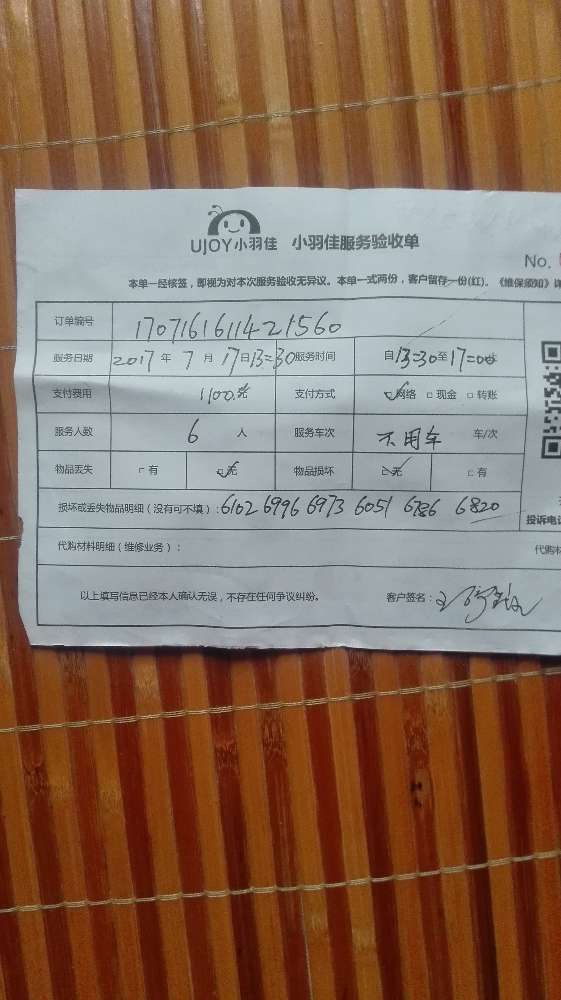 UJOY小羽佳 小羽佳服务验收单
No.
本单一经核签，即视为对本次服务验收无异议。本单一式两份，客户留存一份(红)。《维保须知》详
订单编号 170716161142 1560
服务日期 2017年 7月 17日13:30 服务时间 自13:30至17:00
支付费用 1100元 支付方式 ☑网络 □现金 □转账
服务人数 6 人 服务车次 不用车 车/次
物品丢失 □有 ☑无 物品损坏 ☑无 □有
损坏或丢失物品明细（没有可不填）：6102 6996 6973 6051 6786 6820
投诉电话
代购材料明细（维修业务）： 代购材
以上填写信息已经本人确认无误，不存在任何争议纠纷。 客户签名：